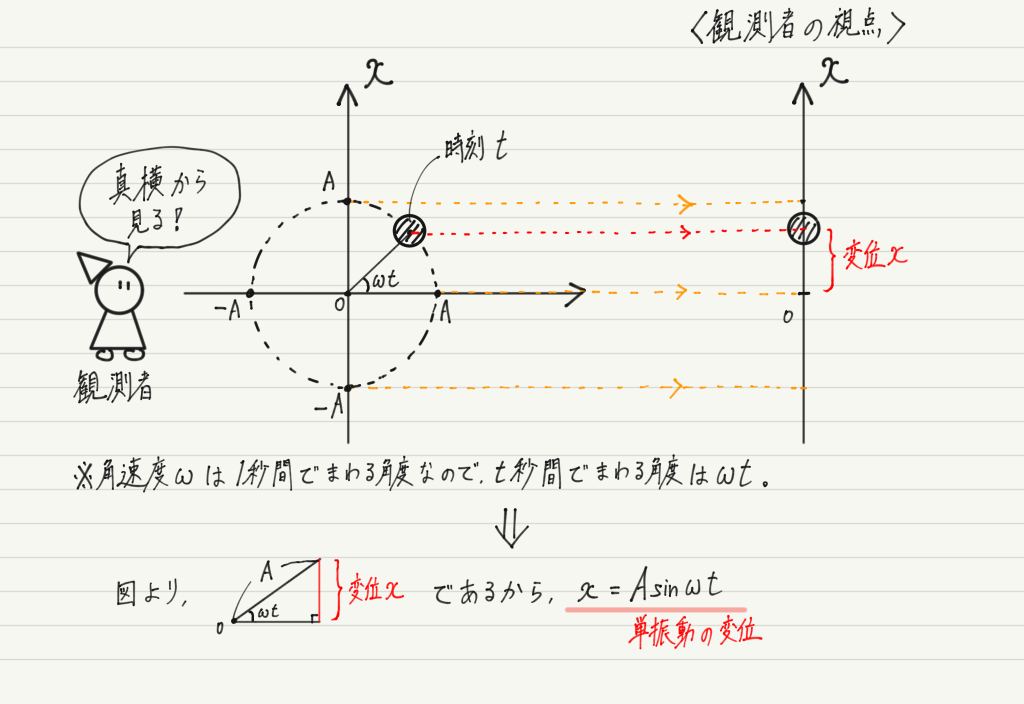 〈観測者の視点〉
x
x
時刻 t
真横から
見る!
A
ωt
変位 x
-A
0
A
0
観測者
-A
※角速度ωは1秒間でまわる角度なので、t秒間でまわる角度はωt。
⇓
図より、
A
ωt
0
変位 x
であるから、 x = A sin ωt
単振動の変位